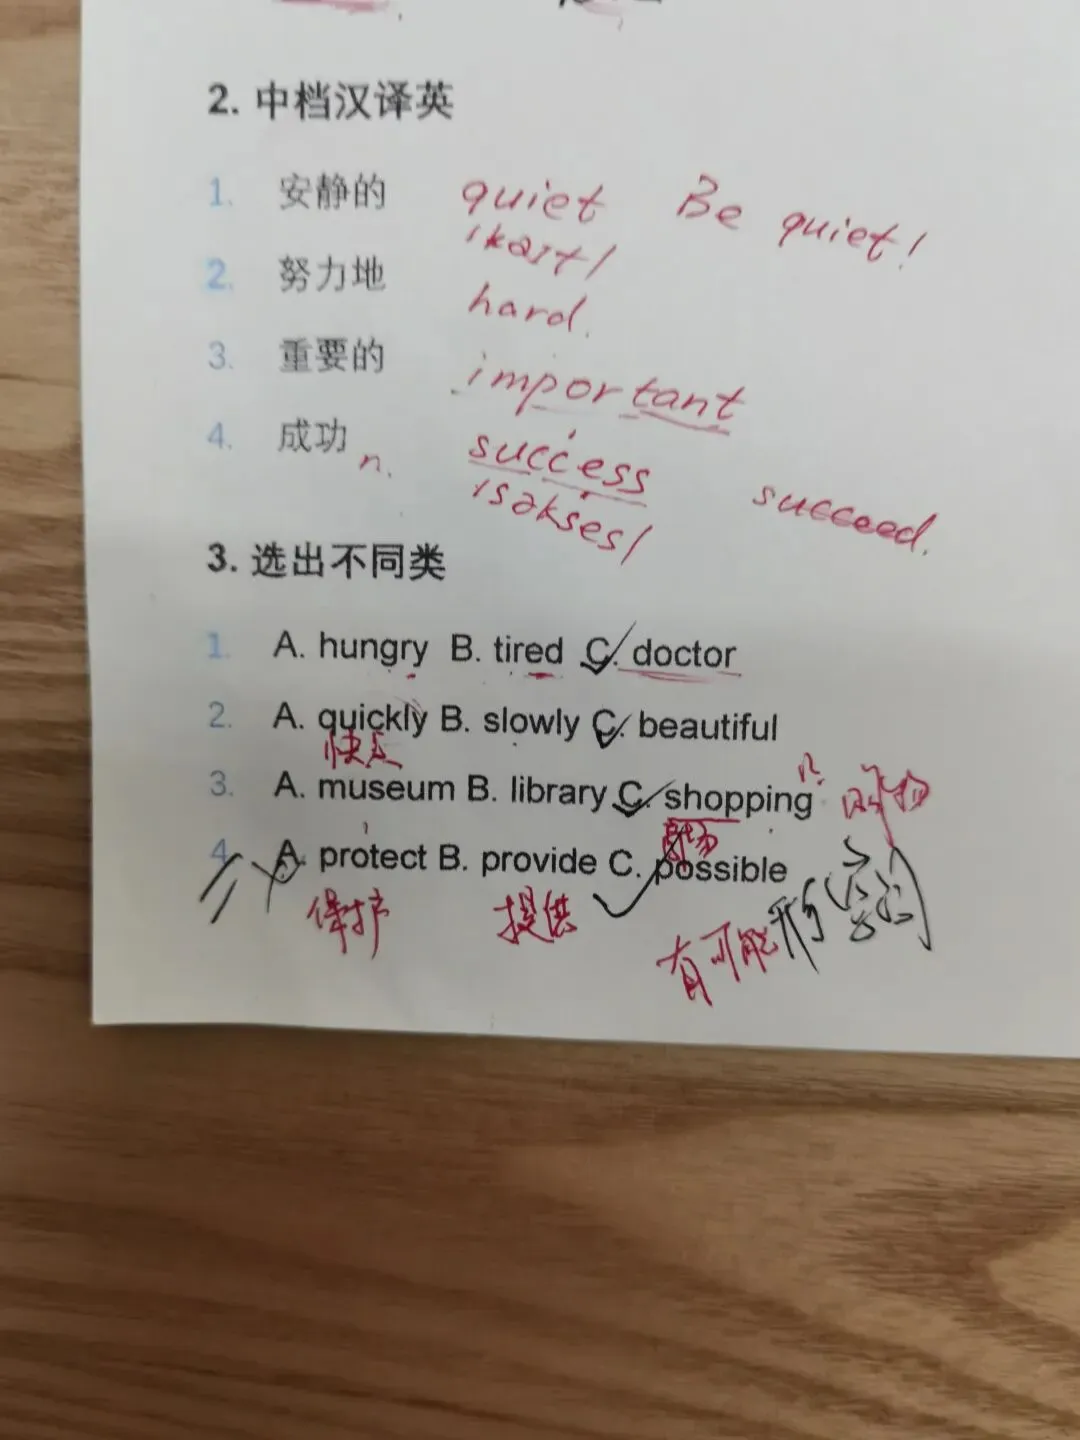 2. 中档汉译英
1. 安静的 quiet Be quiet!
2. 努力地 hard.
3. 重要的 important
4. 成功 n. success succeed.
/səkses/
3. 选出不同类
1. A. hungry B. tired C. doctor
2. A. quickly B. slowly C. beautiful
快点
3. A. museum B. library C. shopping n. 购物
商场
4. A. protect B. provide C. possible
保护 提供 有可能